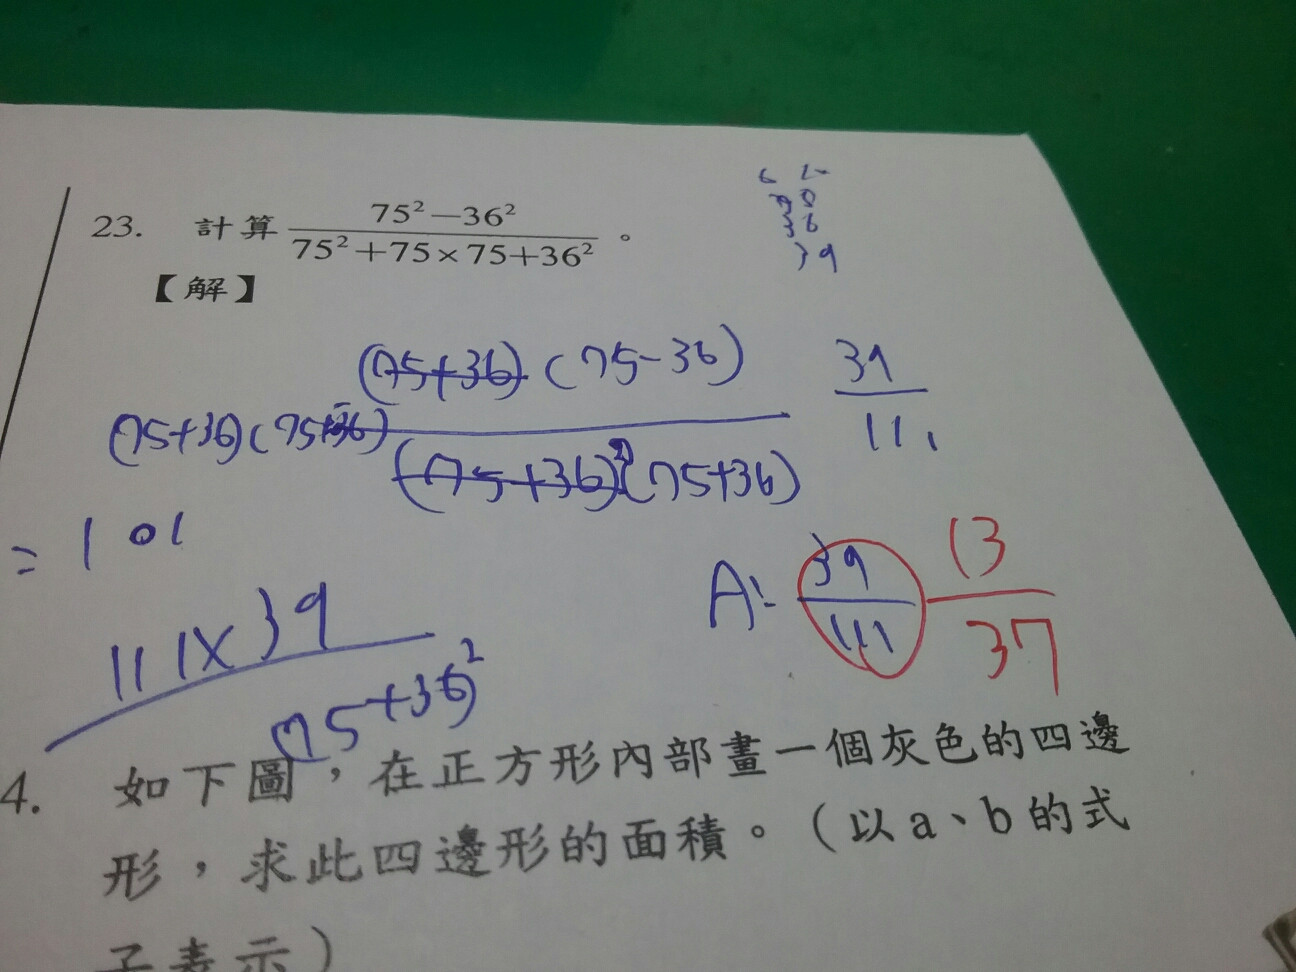 23. 計算 75²－36² / 75²＋75×75＋36² 。
【解】
36
39
(75+36) (75-36)
39
111
(75+36)(75-36)
(75+36)² (75+36)
= 101
111×39
(75+36)²
A: 39/111 13/37
4. 如下圖，在正方形內部畫一個灰色的四邊
形，求此四邊形的面積。（以a、b的式
子表示）